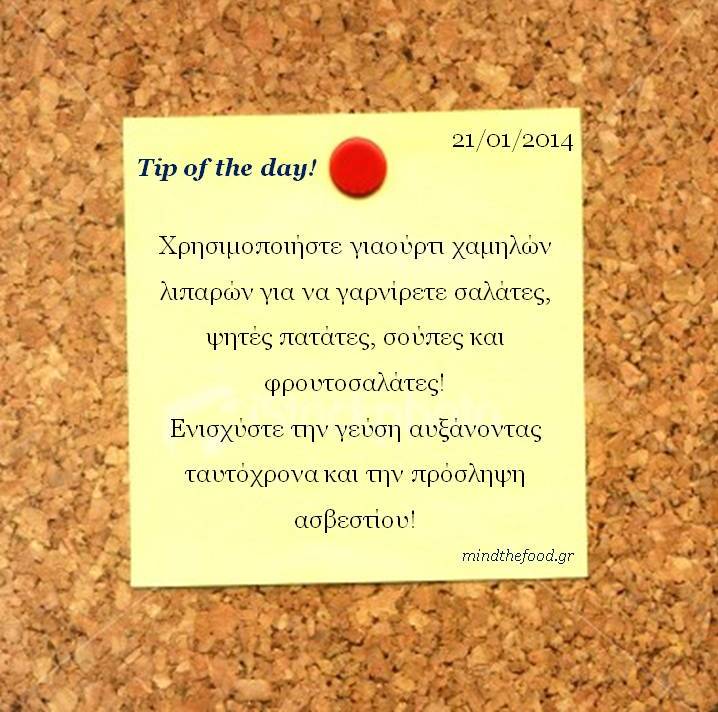 21/01/2014
Tip of the day!
Χρησιμοποιήστε γιαούρτι χαμηλών
λιπαρών για να γαρνίρετε σαλάτες,
ψητές πατάτες, σούπες και
φρουτοσαλάτες!
Ενισχύστε την γεύση αυξάνοντας
ταυτόχρονα και την πρόσληψη
ασβεστίου!
mindthefood.gr